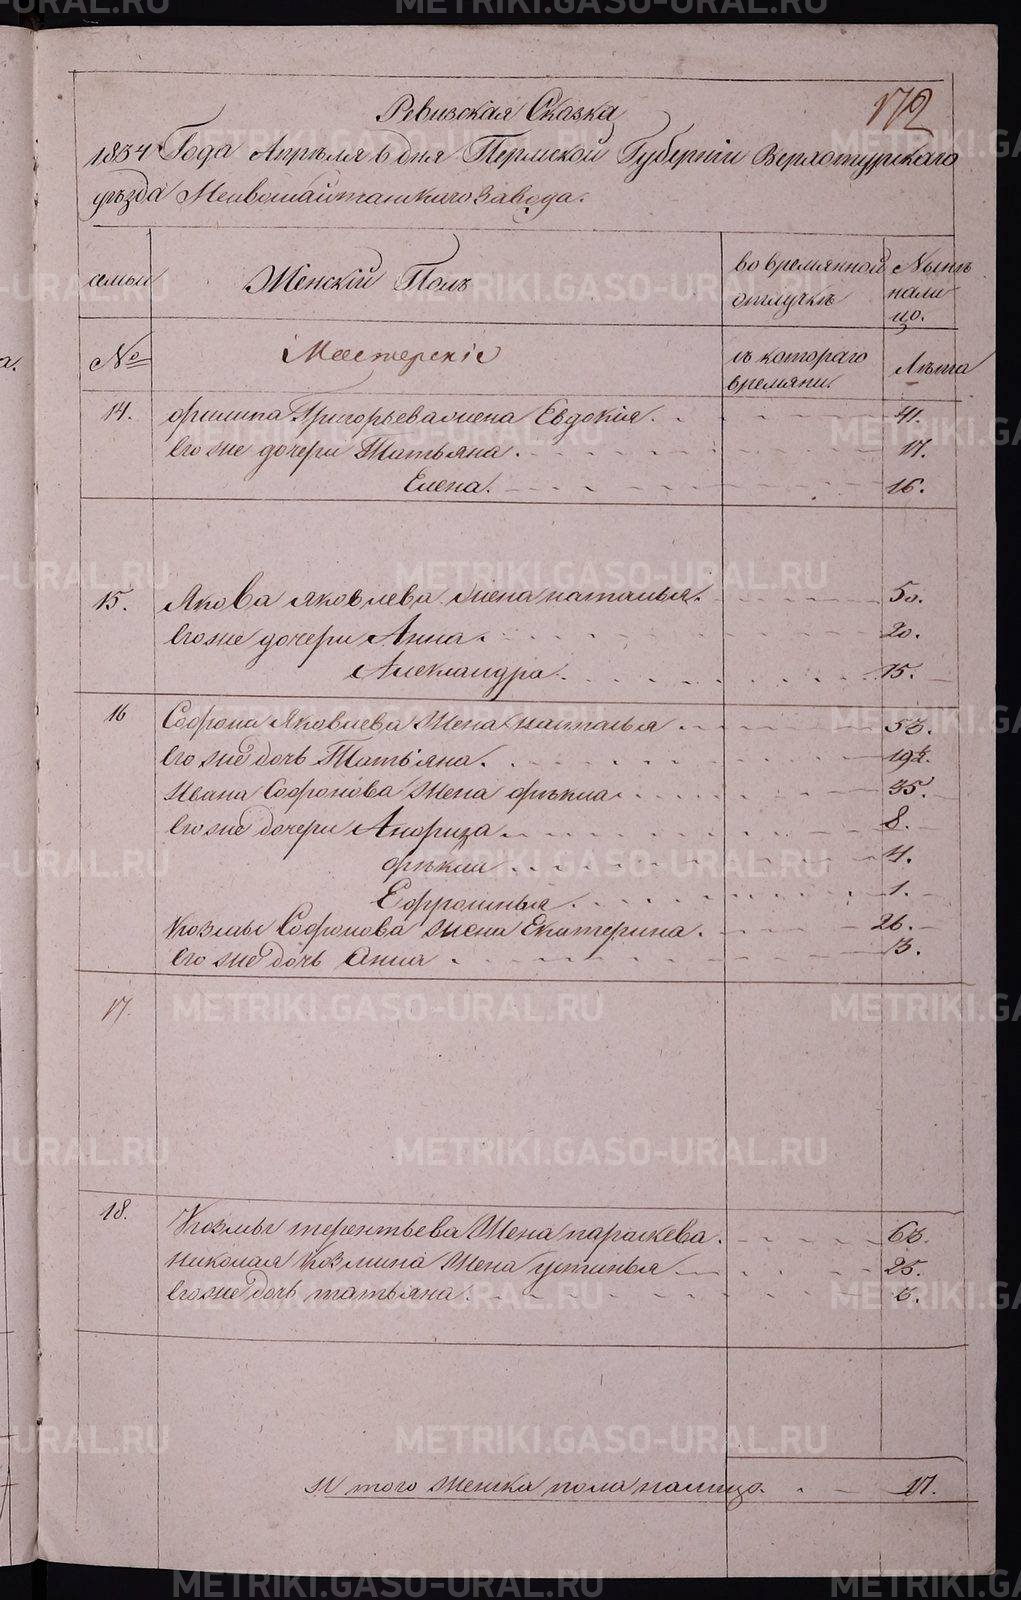 172
Ревизская Сказка
1834 Года Апреля 6 дня Пермской Губернiи Верхотурскаго
уезда Мелвошайтанскаго Завода.
семьи
Женскiй Полъ
во времянной отлучкѣ
Нынѣ на лицо.
№
Мастерскiе
съ котораго времяни
Лѣта
14. Филипа Григорьева жена Евдокiя. 41.
Его же дочери Татьяна. 17.
Елена. 16.
15. Якова Яковлева жена наталья. 50.
Его же дочери Анна. 20.
Александра. 15.
16 Софрона Яковлева Жена наталья 53.
Его же дочь Татьяна. 19½.
Ивана Софронова Жена Фекла 35.
Его же дочери Анфиза 8.
Фекла 4.
Ефросинья 1.
Козмы Софронова жена Екатерина. 26.
Его же дочь Анна 3.
17.
18. Козмы терентьева Жена параскева. 63.
Николая Козмина Жена устинья 25.
Его же дочь татьяна. 6.
И того Женска пола налицо. 17.
METRIKI.GASO-URAL.RU